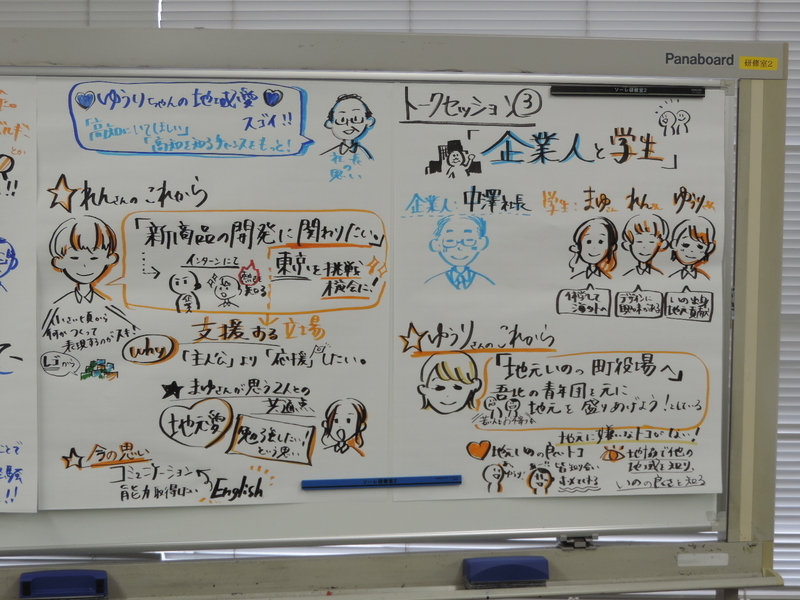 Panaboard
研修室2
ソーレ研修室2
トークセッション③
「企業人と学生」
企業人: 中澤社長
学生: まゆさん れんさん ゆうりさん
休学して
海外へ
デザインに
興味がある
いの出身
地元貢献
☆ゆうりさんのこれから
「地元いのっ町役場へ」
吾北の青年団を元に
地元を盛りあげよう!としている
地元に嫌いなトコがない!
地元いのの良いトコ
皆知り合い
ほめてくれる
地域で他の
地域を知り、
いのの良さを知る
ゆうりちゃんの地域愛
スゴイ!!
「高知にいてほしい」
「高知を知るチャンスをもっと!」
社長の
思い
☆れんさんのこれから
「新商品の開発に関わりたい」
インターンにて
企業
東京も挑戦
機会に!
小さい頃から
何かつくって
表現するのがスキ!
Why
支援する立場
「主人公」より「応援」したい。
★まゆさんが思う2人との
共通点
地元愛
勉強したい!
という思い
☆今の思い
コミュニケーション
能力取得したい
English
ソーレ研修室2